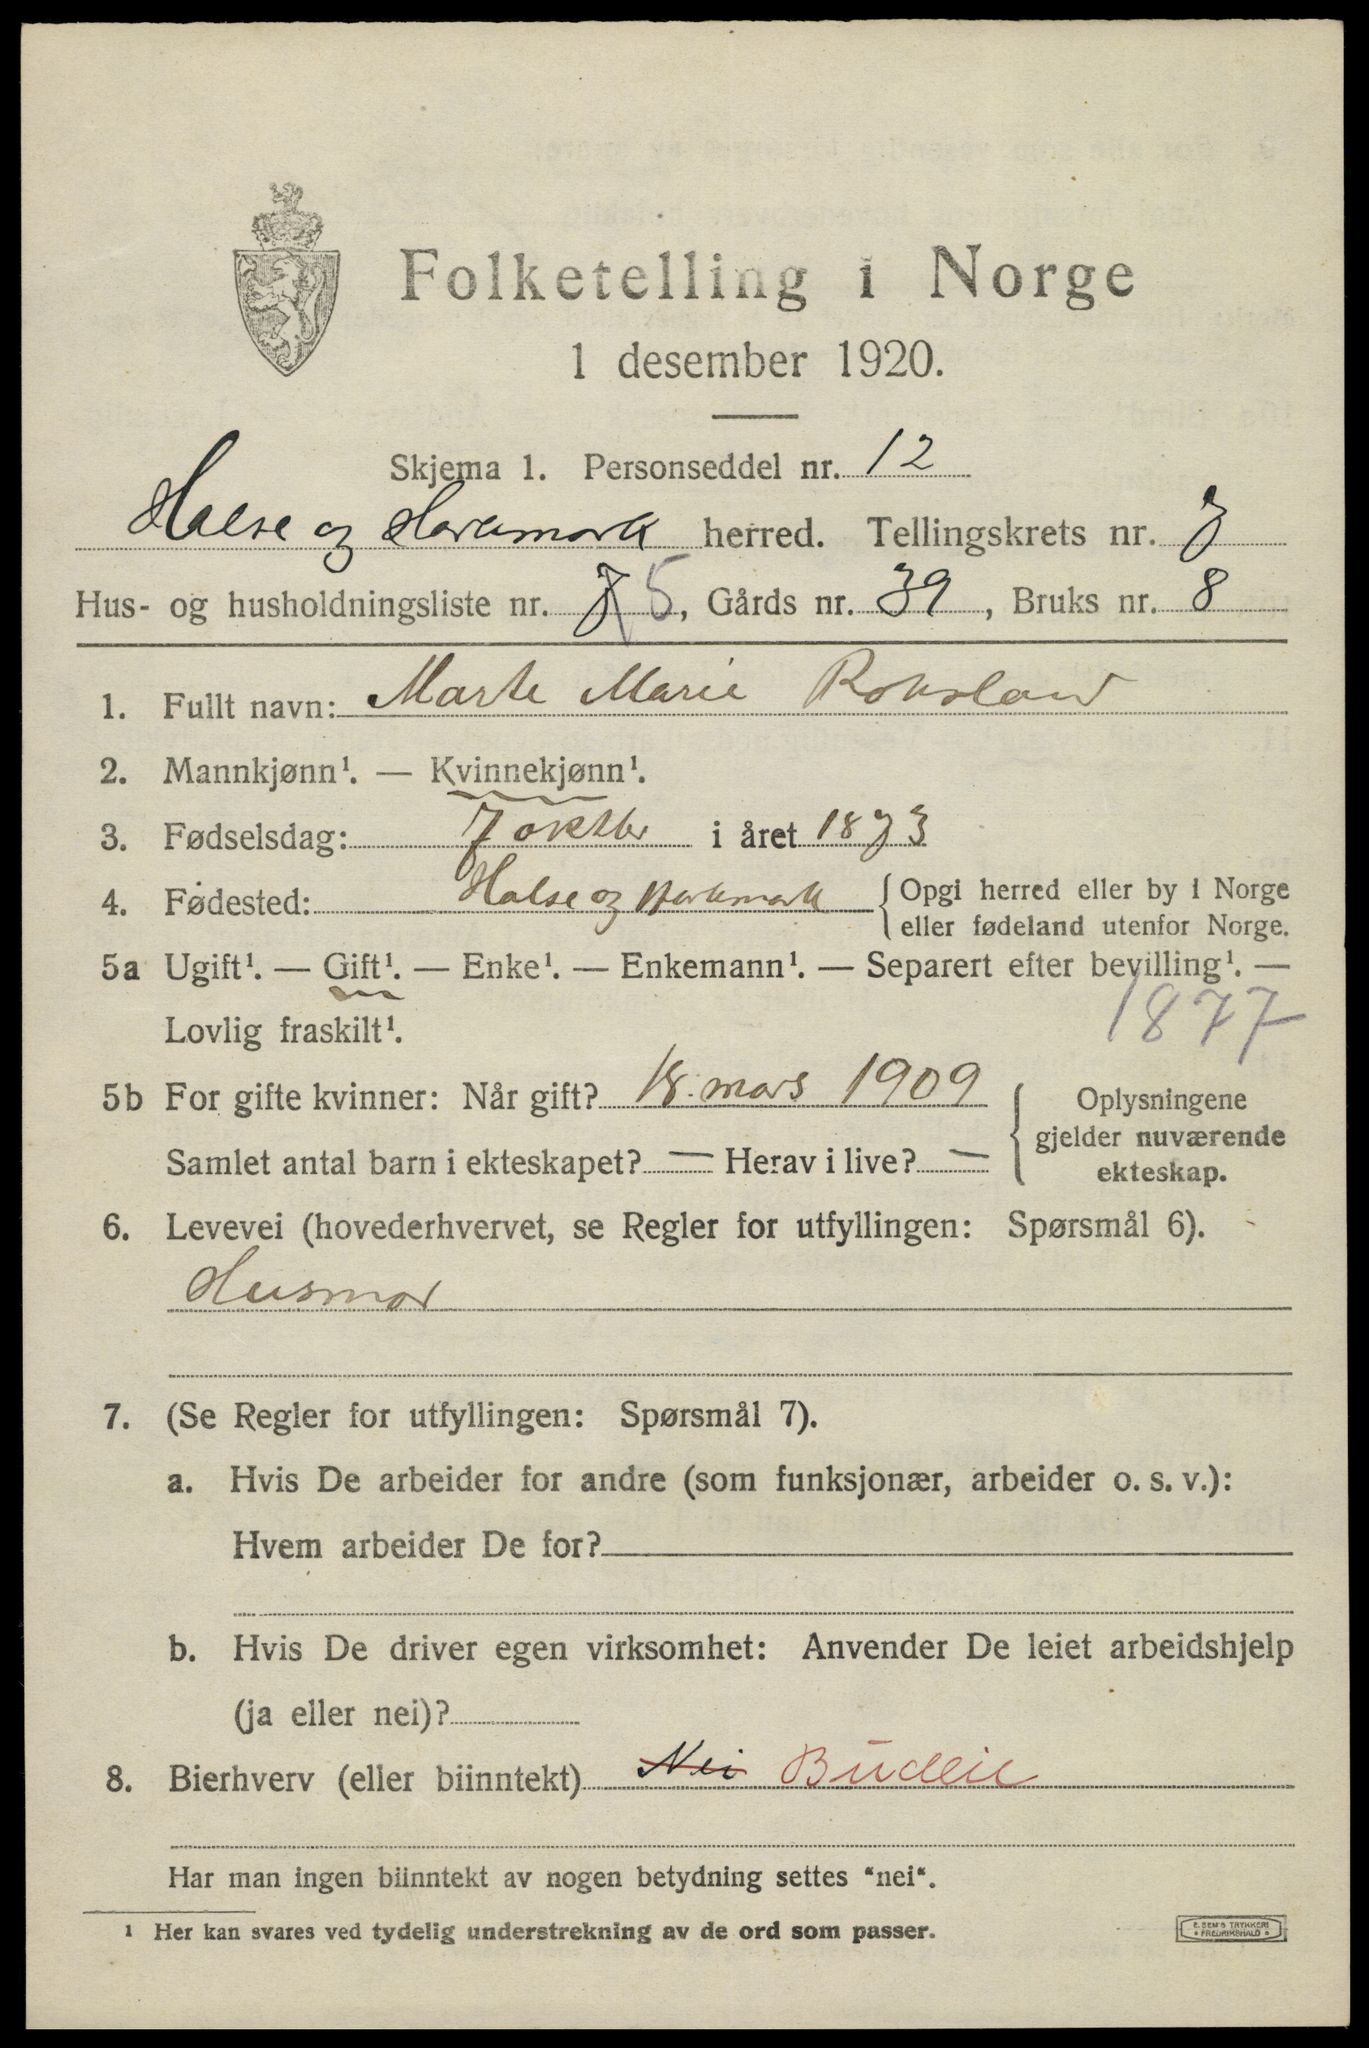 Folketelling i Norge
1 desember 1920.
Skjema 1. Personseddel nr. 12
Halse og Harkmark herred. Tellingskrets nr. 7
Hus- og husholdningsliste nr. 7 5, Gårds nr. 39, Bruks nr. 8
1. Fullt navn: Marte Marie
2. Mannkjønn¹. — Kvinnekjønn¹.
3. Fødselsdag: 7 oktbr i året 1873
4. Fødested: Halse og Harkmark { Opgi herred eller by i Norge
eller fødeland utenfor Norge.
5a Ugift¹. — Gift¹. — Enke¹. — Enkemann¹. — Separert efter bevilling¹. —
Lovlig fraskilt¹. 1877
5b For gifte kvinner: Når gift? 18. mars 1909 { Oplysningene
gjelder nuværende
Samlet antal barn i ekteskapet? — Herav i live? —
ekteskap.
6. Levevei (hovederhvervet, se Regler for utfyllingen: Spørsmål 6).
Husmor
7. (Se Regler for utfyllingen: Spørsmål 7).
a. Hvis De arbeider for andre (som funksjonær, arbeider o. s. v.):
Hvem arbeider De for?
b. Hvis De driver egen virksomhet: Anvender De leiet arbeidshjelp
(ja eller nei)?
8. Bierhverv (eller biinntekt) Nei Budeie
Har man ingen biinntekt av nogen betydning settes "nei".
¹ Her kan svares ved tydelig understrekning av de ord som passer.
E. SEM'S TRYKKERI
FREDRIKSHALD